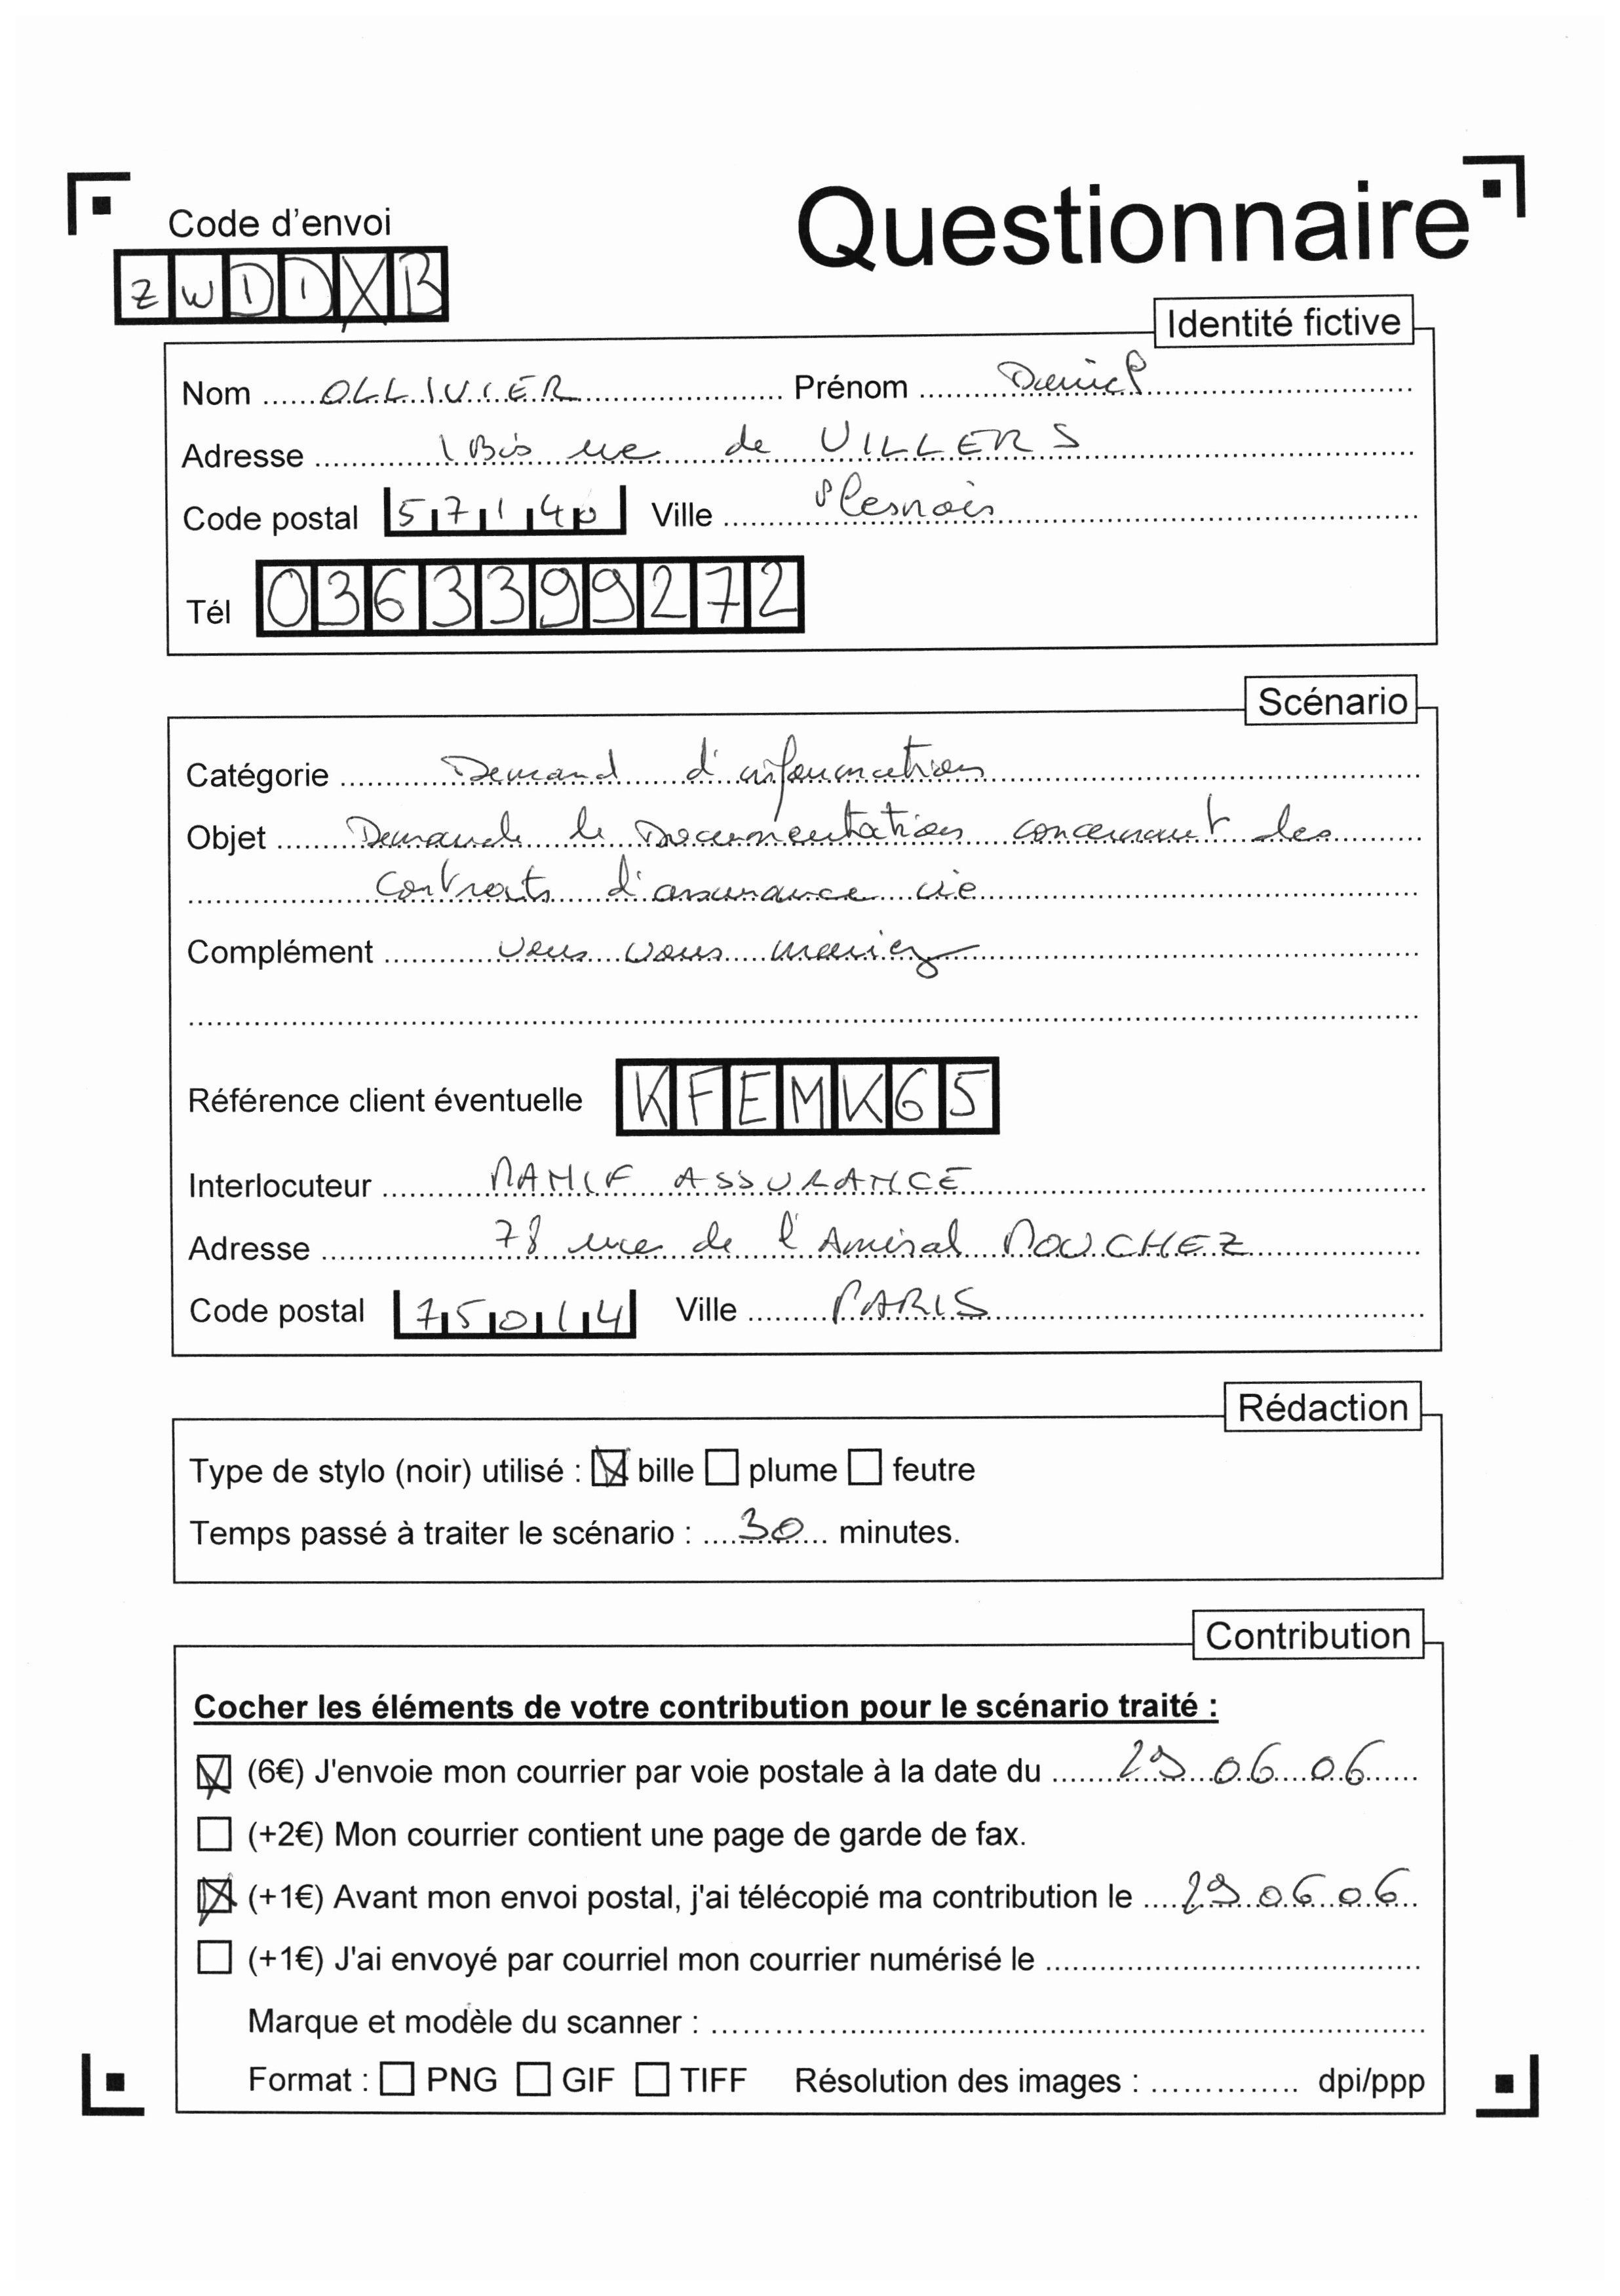 Questionnaire
Code d'envoi
ZWDDXB
Identité fictive
Nom OLLIVIER Prénom Daniel
Adresse 1 Bis rue de VILLERS
Code postal 57140 Ville Plesnois
Tél 0363399272
Scénario
Catégorie Demand d'information
Objet Demande de Documentation concernant les
contrats d'assurance vie
Complément Vous vous mariez
Référence client éventuelle KFEMK65
Interlocuteur MAMIF ASSURANCE
Adresse 78 rue de l'Amiral MOUCHEZ
Code postal 75014 Ville PARIS
Rédaction
Type de stylo (noir) utilisé : ☒ bille ☐ plume ☐ feutre
Temps passé à traiter le scénario : 30 minutes.
Contribution
Cocher les éléments de votre contribution pour le scénario traité :
☒ (6€) J'envoie mon courrier par voie postale à la date du 29 06 06
☐ (+2€) Mon courrier contient une page de garde de fax.
☒ (+1€) Avant mon envoi postal, j'ai télécopié ma contribution le 29 06 06
☐ (+1€) J'ai envoyé par courriel mon courrier numérisé le
Marque et modèle du scanner :
Format : ☐ PNG ☐ GIF ☐ TIFF Résolution des images : dpi/ppp